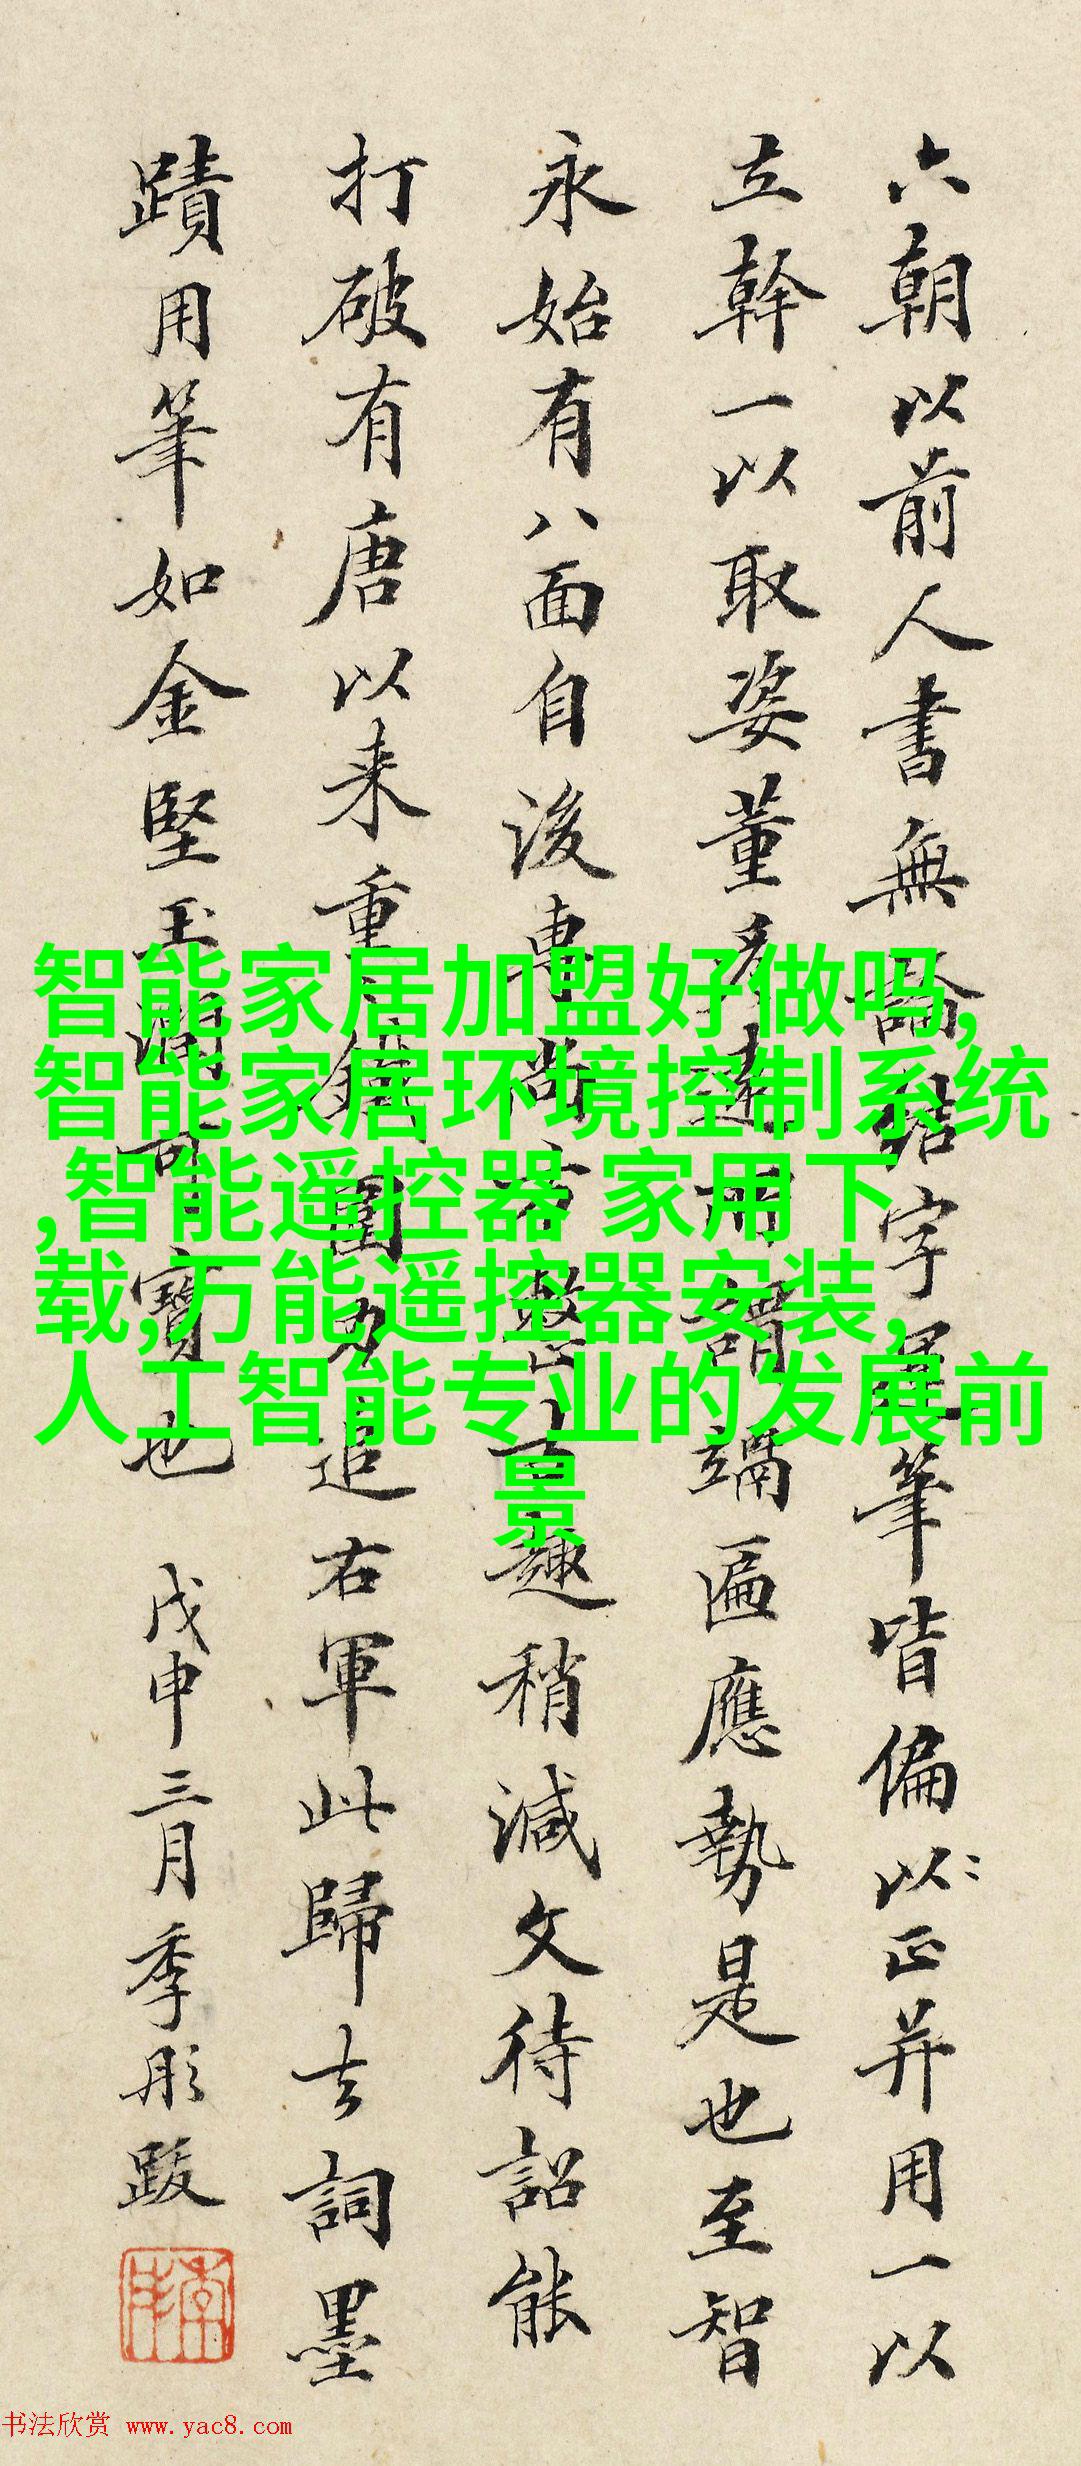 六朝以前人書無論結字運筆皆偏以〻正并用一以
立幹一以取姿董彥遠所謂端匾應勢是也至智
永始有八面自後專尚方整古趣稍減文待詔能
打破有唐以来重圍力追右軍此歸去詞墨
蹟用筆如金堅玉潤可寶也 戊申三月季彤跋
智能家居加盟好做吗,
智能家居环境控制系统
,智能遥控器 家用下
载,万能遥控器安装,
人工智能专业的发展前
景
书法欣赏 www.yac8.com